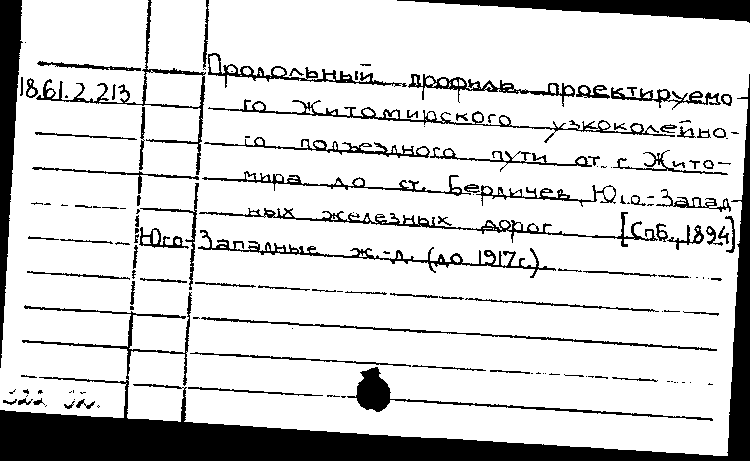 Продольный профиль проектируемо-
18.61.2.213 го Житомирского узкоколейно-
го подъездного пути от г. Жито-
мира до ст. Бердичев, Юго-Запад-
ных железных дорог. [Спб., 1894].
Юго-Западные ж.-д. (до 1917г.).